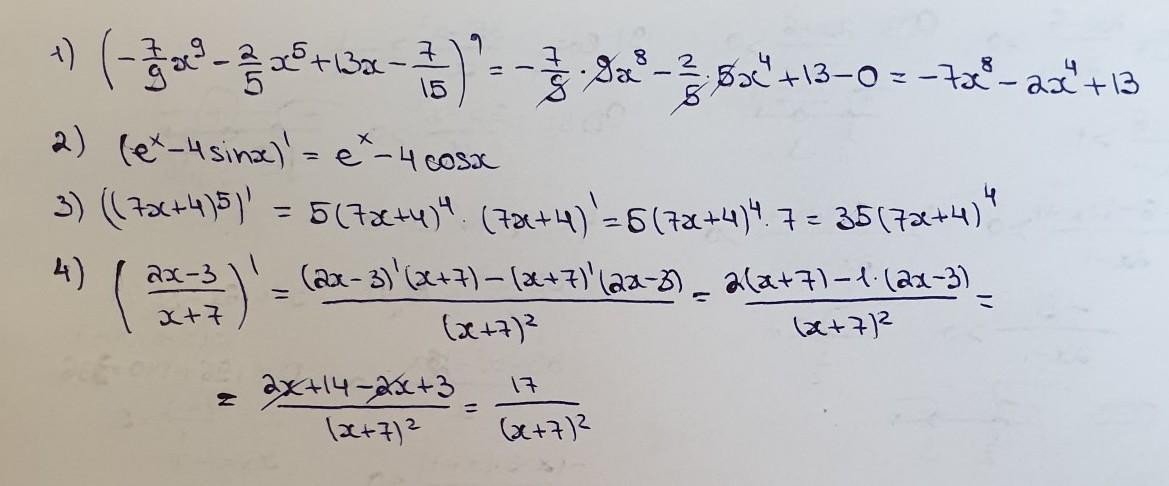 1) (-7/9 x⁹ - 2/5 x⁵ + 13x - 7/15)' = -7/9 · 9x⁸ - 2/5 · 5x⁴ + 13 - 0 = -7x⁸ - 2x⁴ + 13
2) (eˣ - 4 sinx)' = eˣ - 4 cosx
3) ((7x+4)⁵)' = 5(7x+4)⁴ · (7x+4)' = 5(7x+4)⁴ · 7 = 35(7x+4)⁴
4) ((2x-3)/(x+7))' = ((2x-3)'(x+7) - (x+7)'(2x-3))/(x+7)² = (2(x+7) - 1·(2x-3))/(x+7)² =
= (2x+14-2x+3)/(x+7)² = 17/(x+7)²